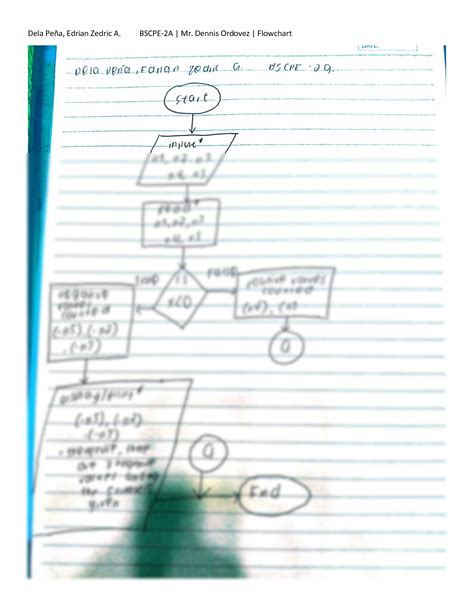 Dela Peña, Edrian Zedric A. BSCPE-2A | Mr. Dennis Ordovez | Flowchart
DATE:
Dela Peña, Edrian Zedric A. BSCPE-2A
Start
input
n1, n2, n3
n4, n5
read
n1, n2, n3
n4, n5
is
x<0
true
false
negative
values
counted
(-n5), (-n2)
, (-n3)
positive values
counted
(n4), (n1)
a
display/print
(-n5), (-n2)
(-n3)
a
End